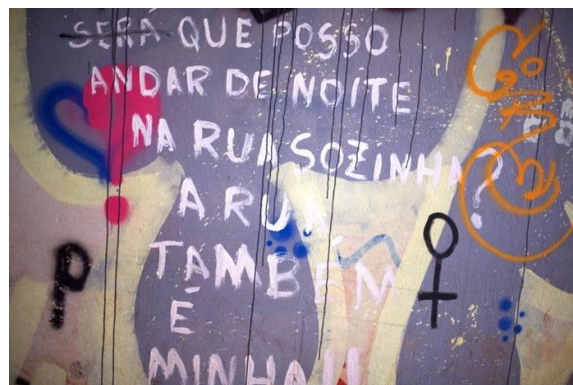 SERÁ QUE POSSO
ANDAR DE NOITE
NA RUA SOZINHA?
A RUA
TAMBÉM
É
MINHA!!
P